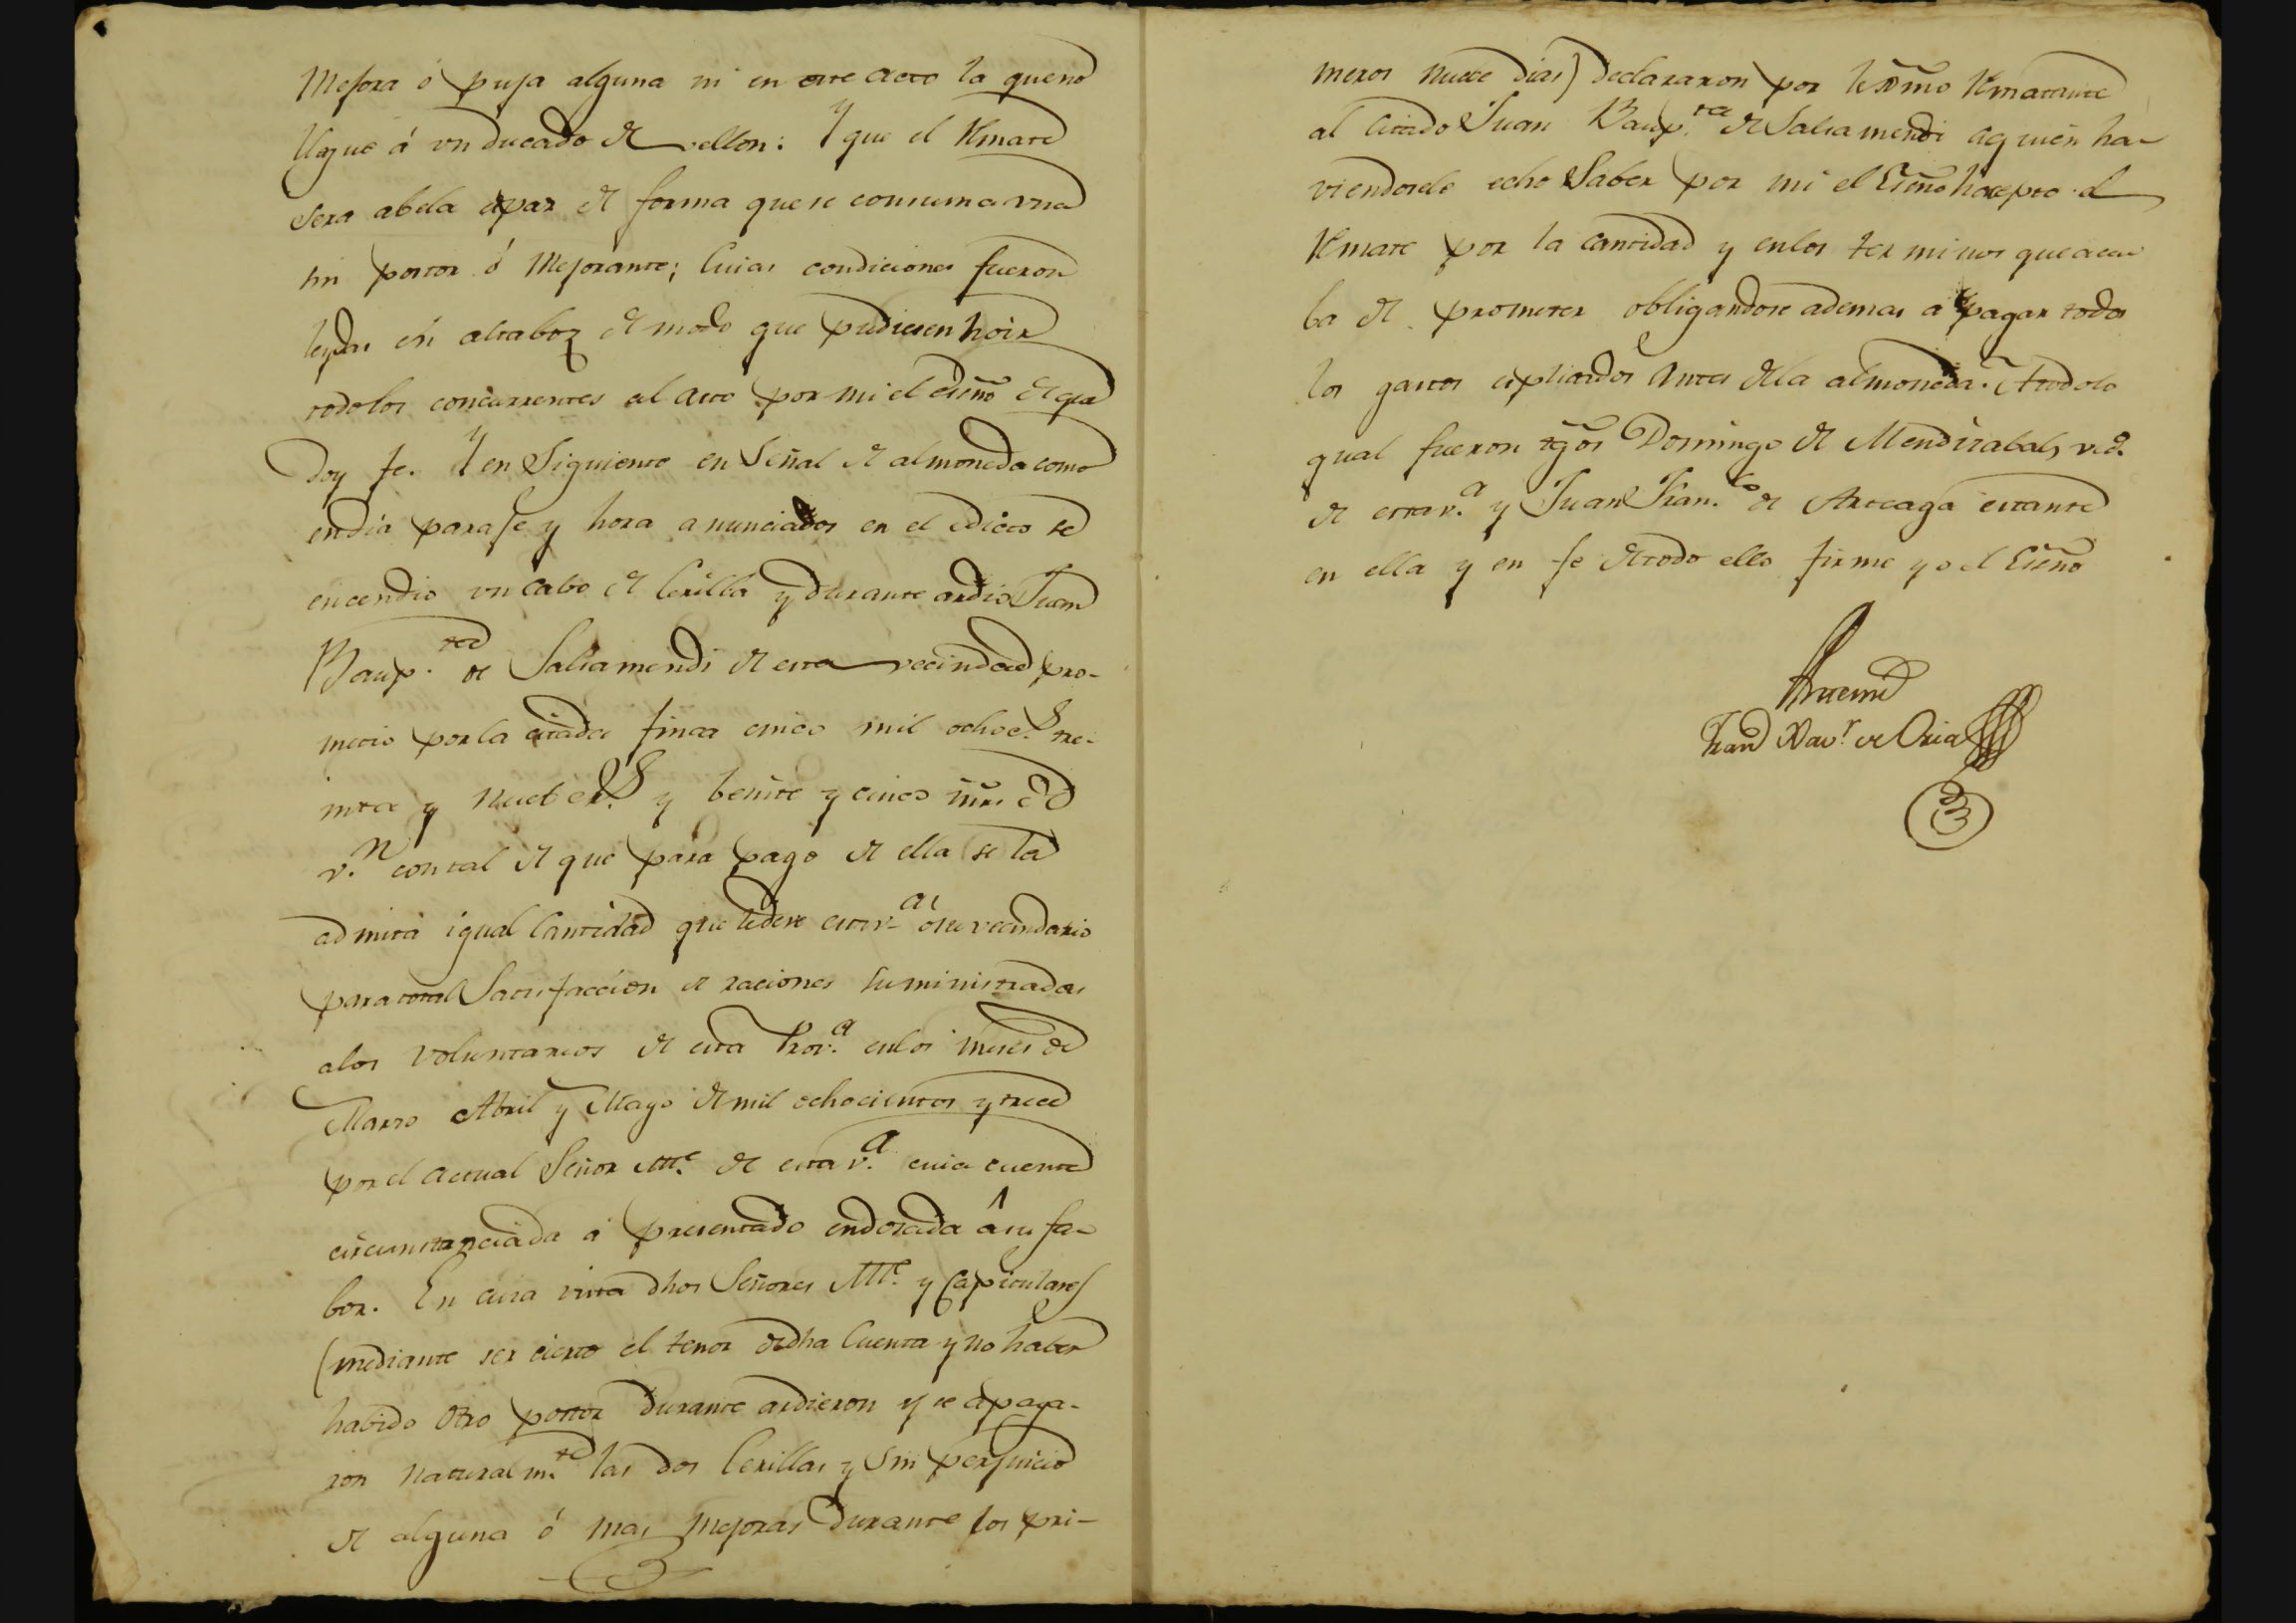 Mejora ó puja alguna ni en este acto la que no
llegue á vn ducado de vellon: Y que el Rmate
sera abela apar de forma que se consuma vna
sin postor ó Mejorante; Cuias condiciones fueron
leydas én altaboz de modo que pudiesen hoir
todos los concurrentes al acto por mi el esno de que
doy fe. Y en Siguiente en Señal de almoneda como
en dia paraje y hora anunciados en el edicto se
encendio vn cabo de Cerilla y durante ardio Juan
Baup.ta de Saliamendi de esta vecindad pro-
metio por la citada finca cinco mil ochoc.s tre-
inta y nueb e r.s y beinte y cinco mrs de
v.n con tal de que para pago de ella se la
admita igual Cantidad que le deve esta v.a ó su vecindario
para total Satisfaccion de raciones suministradas
a los voluntarios de esta Prov.a en los meses de
Marzo Abril y Mayo de mil ochocientos y trece
por el actual Señor Alle. de esta v.a cuia cuenta
circunstanciada á presentado endosada â su fa-
bor. En cuia vista dhos Señores Alle. y Capitulares
(mediante ser cierto el tenor de dha Cuenta y no haber
habido otro postor durante ardieron y se apaga-
ron naturalm.te las dos Cerillas y sin perjuicio
de alguna ó mas mejoras durante los pri-
meros nuebe dias) declararon por lexmo Rmatante
al citado Juan Baup.ta de Saliamendi aquien ha-
viendosele echo Saber por mi el Esno hacepto el
Rmate por la cantidad y en los terminos que aca-
ba de prometer obligandose ademas a pagar todos
los gastos espliados Antes de la almoneda. Atodo lo
qual fueron tgõs Domingo de Mendizabal, vec.o
de esta v.a y Juan Fran.co de Arteaga estante
en ella y en fe de todo ello firme yo el Esno
Antemi
Fran Xav.r de Oria